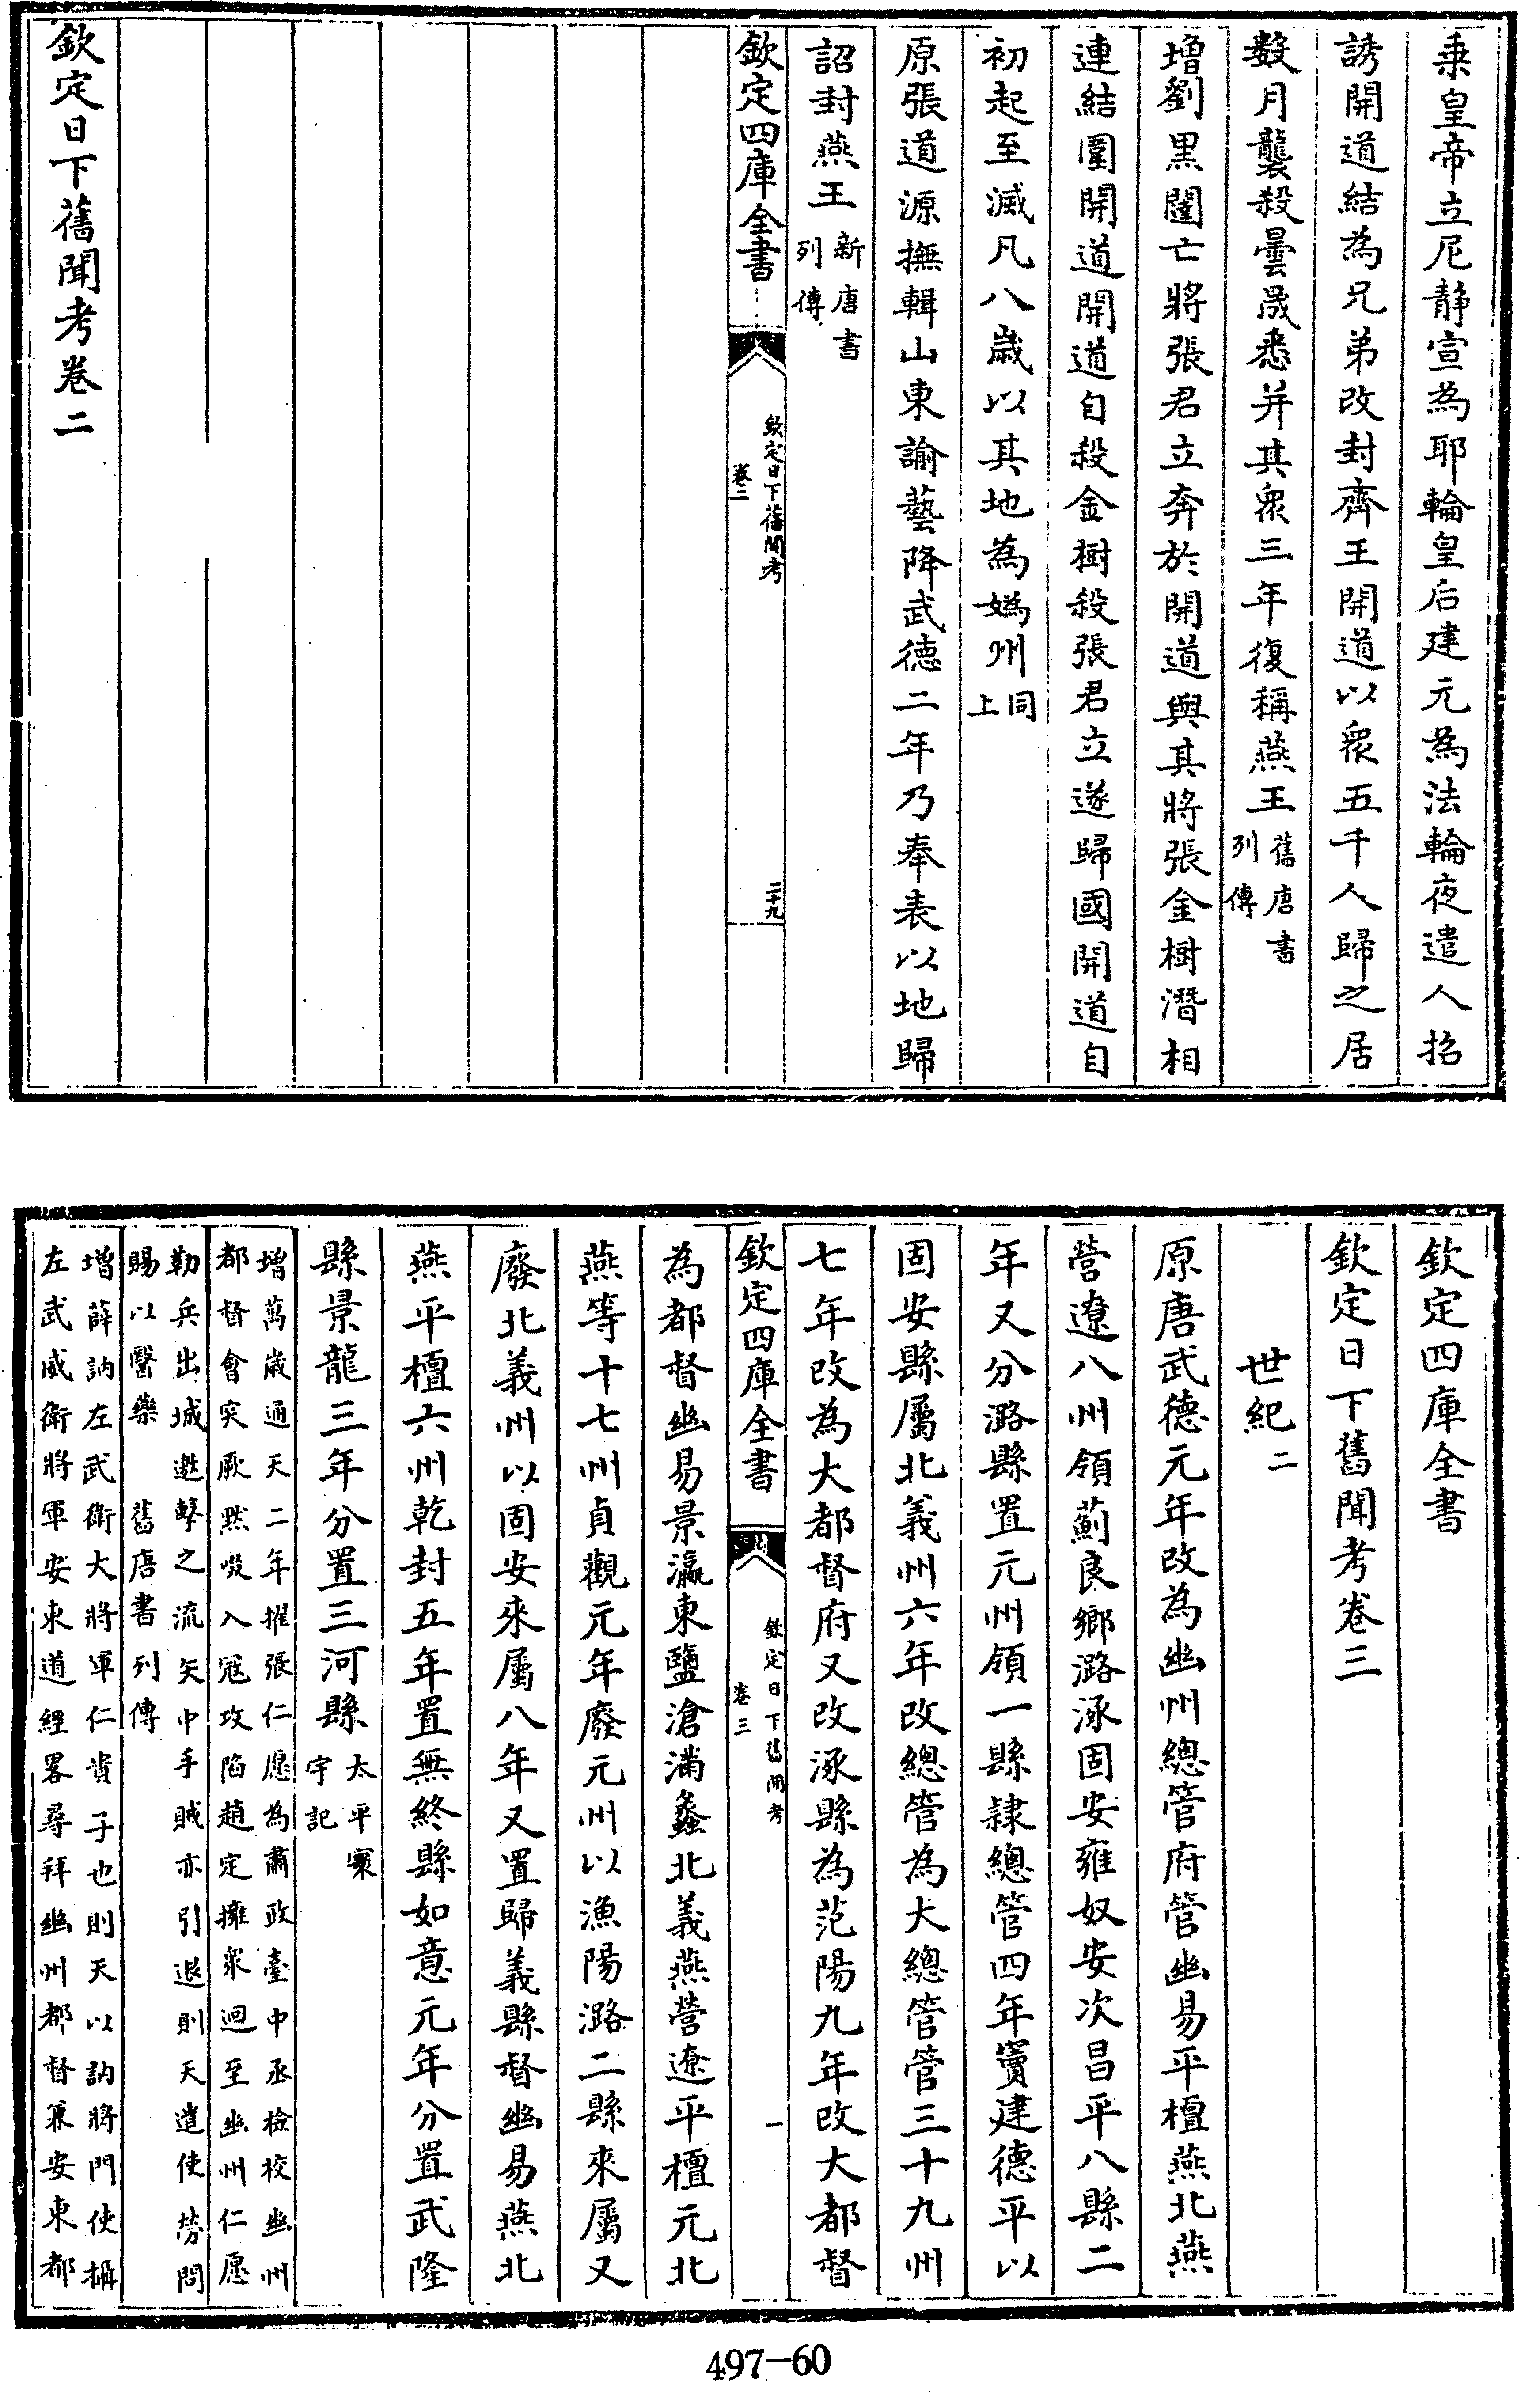 乗皇帝立尼靜宣為耶輪皇后建元為法輪夜遣人招
誘開道結為兄弟改封齊王開道以衆五千人歸之居
數月襲殺曇晟悉并其衆三年復稱燕王舊唐書列傳
增劉黒闥亡將張君立奔於開道與其將張金樹潛相
連結圍開道開道自殺金樹殺張君立遂歸國開道自
初起至滅凡八歲以其地為媯州同上
原張道源撫輯山東諭藝降武德二年乃奉表以地歸
詔封燕王新唐書列傳
欽定四庫全書
欽定日下舊聞考
卷二
二十九
欽定日下舊聞考卷二
欽定四庫全書
欽定日下舊聞考卷三
世紀二
原唐武德元年改為幽州總管府管幽易平檀燕北燕
營遼八州領薊良鄉潞涿固安雍奴安次昌平八縣二
年又分潞縣置元州領一縣隷總管四年竇建德平以
固安縣屬北義州六年改總管為大總管管三十九州
七年改為大都督府又改涿縣為范陽九年改大都督
欽定四庫全書
欽定日下舊聞考
卷三
一
為都督幽易景瀛東鹽滄蒲蠡北義燕營遼平檀元北
燕等十七州貞觀元年廢元州以漁陽潞二縣來屬又
廢北義州以固安來屬八年又置歸義縣督幽易燕北
燕平檀六州乾封五年置無終縣如意元年分置武隆
縣景龍三年分置三河縣太平寰宇記
增萬歲通天二年擢張仁愿為肅政臺中丞檢校幽州
都督會突厥黙啜入冦攻陷趙定擁衆迴至幽州仁愿
勒兵出城邀擊之流矢中手賊亦引退則天遣使勞問
賜以醫藥 舊唐書列傳
增薛訥左武衛大將軍仁貴子也則天以訥將門使攝
左武威衛將軍安東道經畧尋拜幽州都督兼安東都
497-60